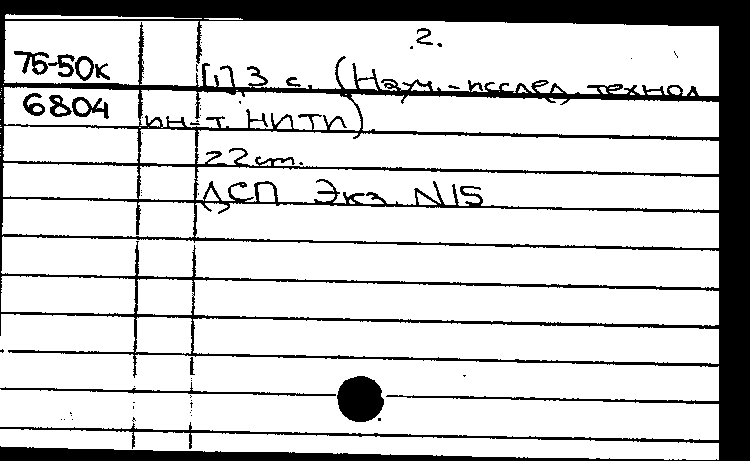 2.
76-50к [1], 3 с. (Науч.-исслед. технол
6804 ин-т. НИТИ).
22 cm.
ДСП Экз. N15